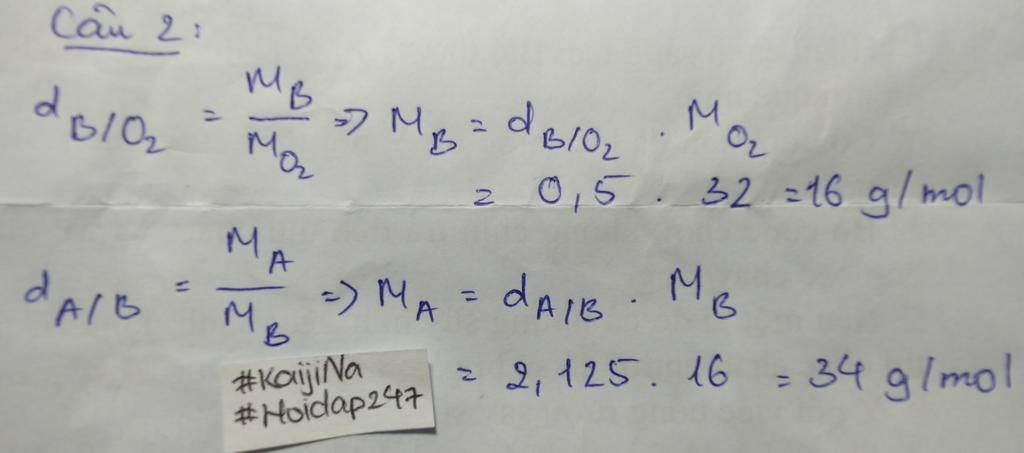 Câu 2:
d B/O₂ = M_B / M_O₂ => M_B = d B/O₂ . M_O₂
= 0,5 . 32 = 16 g/mol
d A/B = M_A / M_B => M_A = d A/B . M_B
= 2,125 . 16 = 34 g/mol
#KaijiNa
#Hoidap247